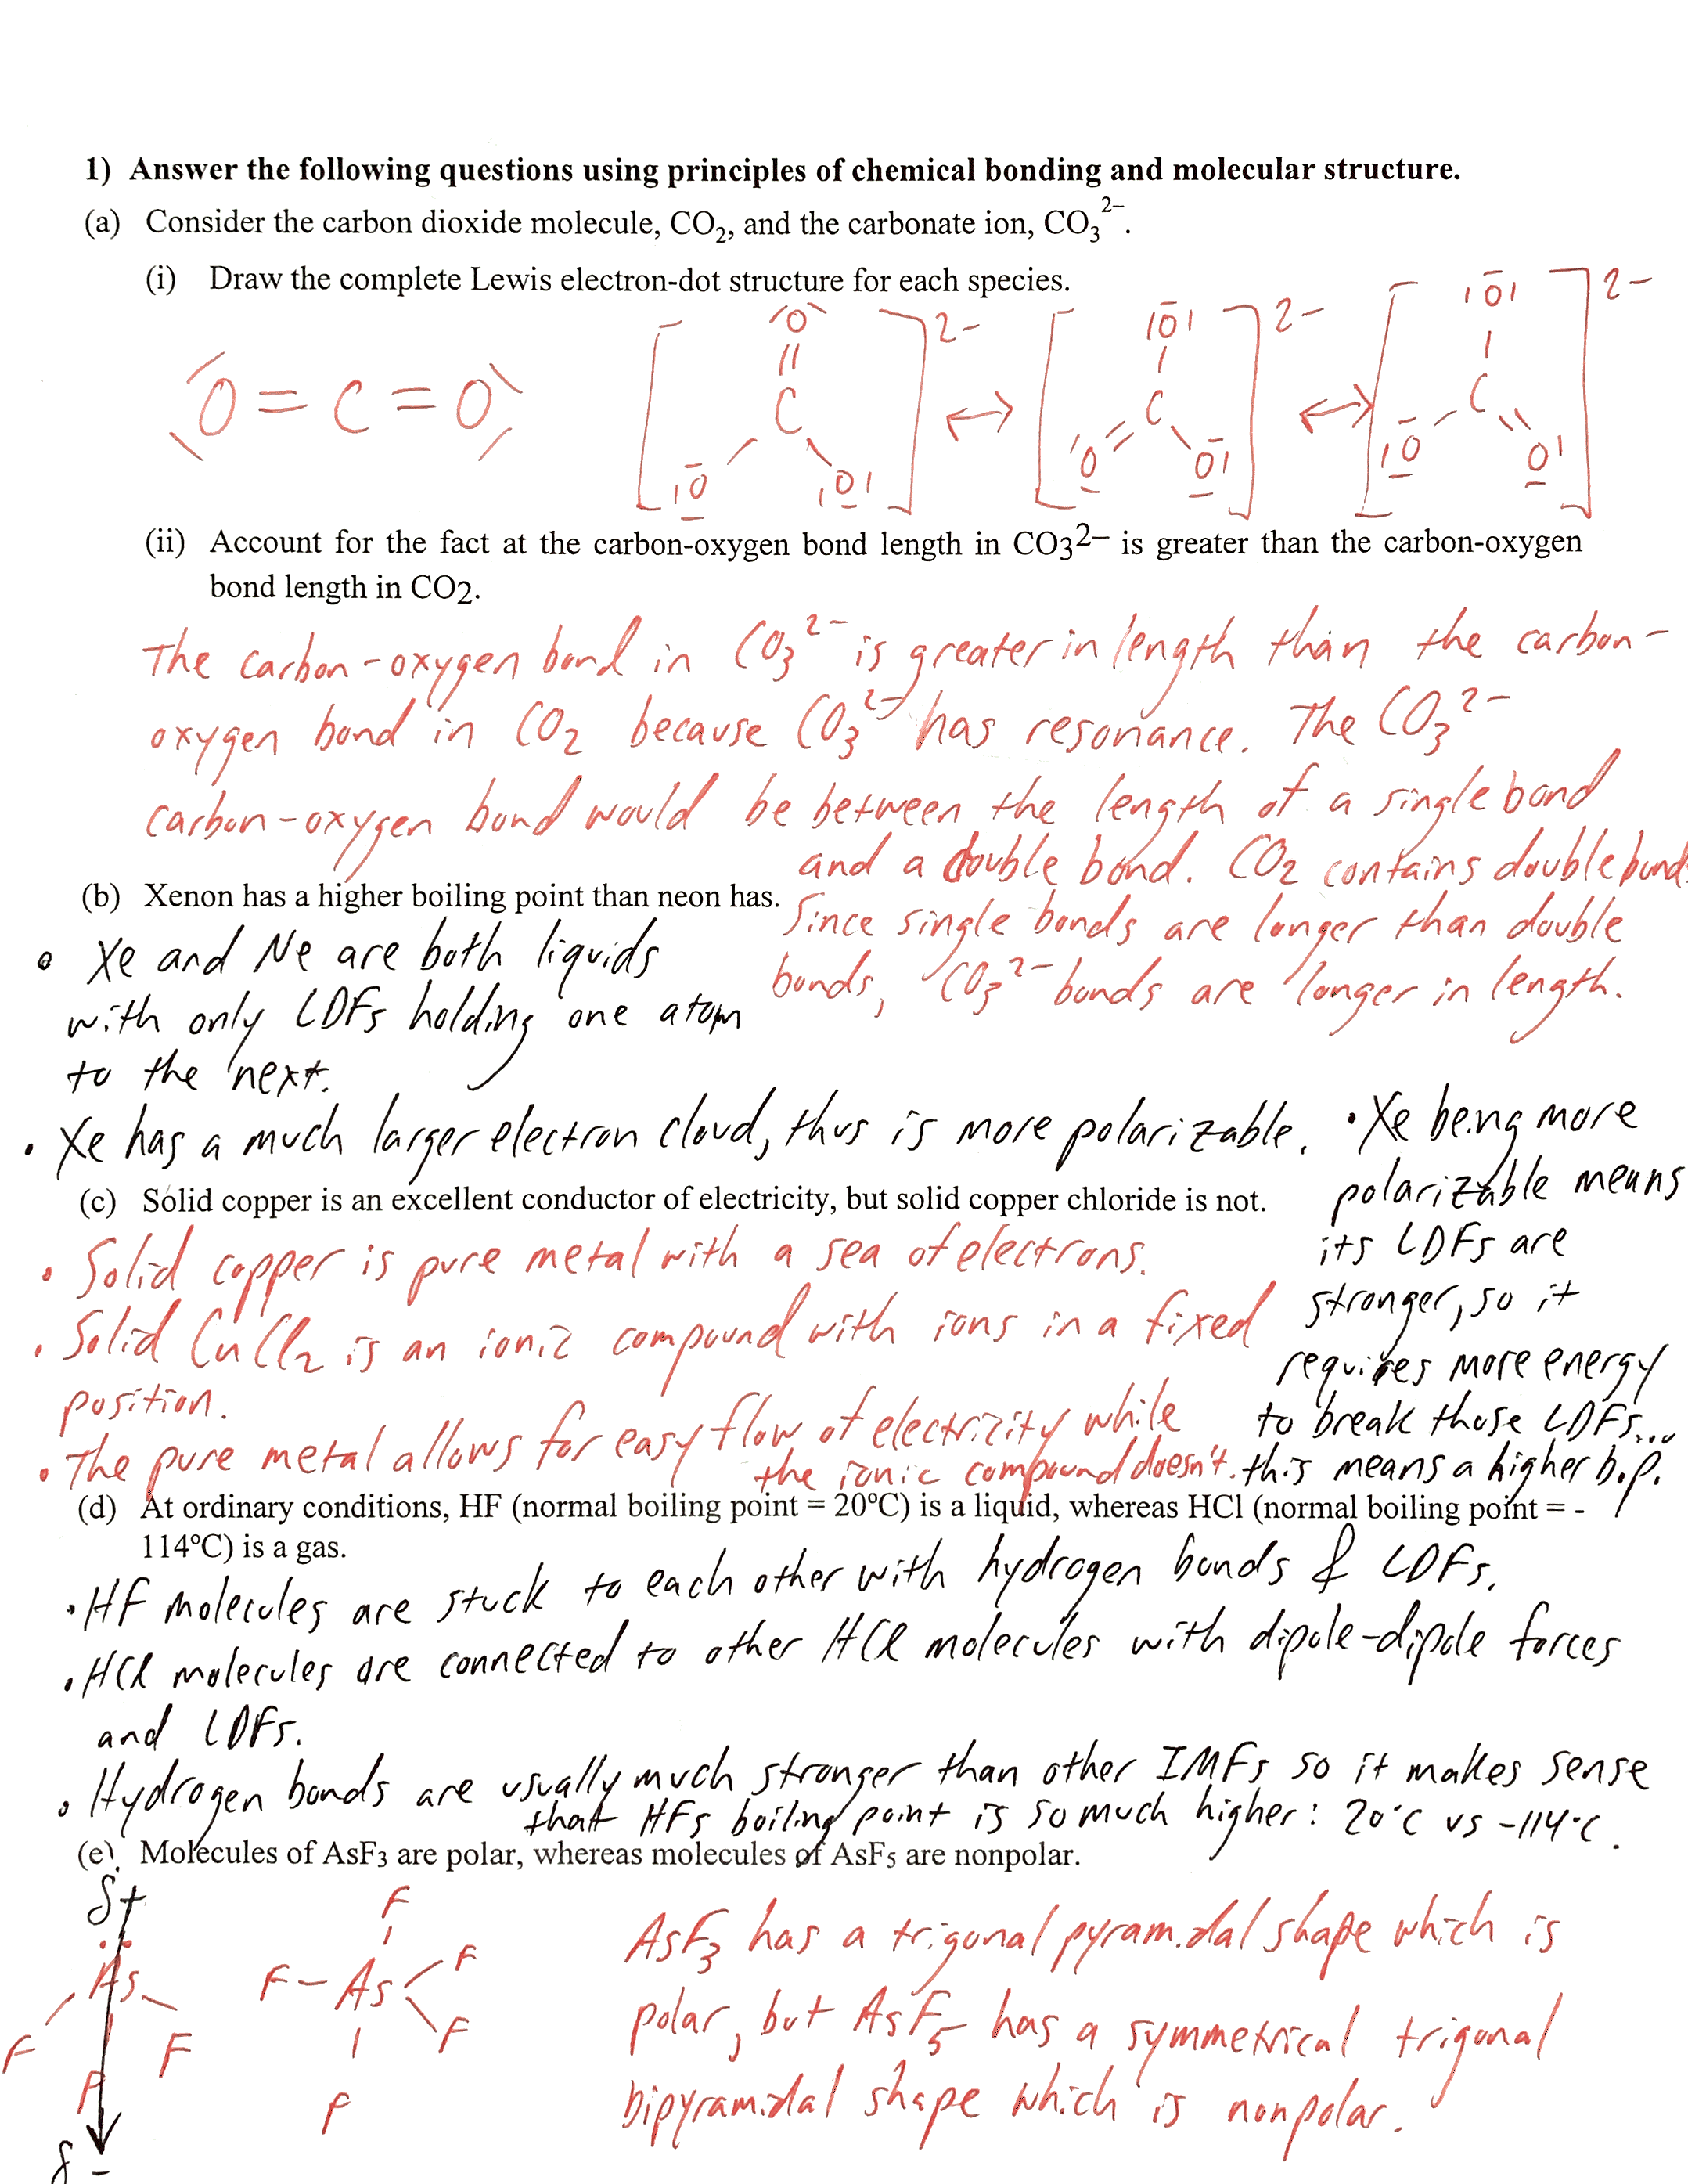 1) Answer the following questions using principles of chemical bonding and molecular structure.
(a) Consider the carbon dioxide molecule, CO₂, and the carbonate ion, CO₃²⁻.
(i) Draw the complete Lewis electron-dot structure for each species.
O = C = O
[O = C - O - O]²⁻ ↔ [O - C = O - O]²⁻ ↔ [O - C - O = O]²⁻
(ii) Account for the fact at the carbon-oxygen bond length in CO3²⁻ is greater than the carbon-oxygen
bond length in CO2.
The carbon-oxygen bond in CO₃²⁻ is greater in length than the carbon-
oxygen bond in CO₂ because CO₃²⁻ has resonance. The CO₃²⁻
carbon-oxygen bond would be between the length of a single bond
and a double bond. CO₂ contains double bonds.
Since single bonds are longer than double
bonds, CO₃²⁻ bonds are longer in length.
(b) Xenon has a higher boiling point than neon has.
• Xe and Ne are both liquids
with only LDFs holding one atom
to the next.
• Xe has a much larger electron cloud, thus is more polarizable.
• Xe being more
polarizable means
its LDFs are
stronger, so it
requires more energy
to break those LDFs...
this means a higher b.p.
(c) Solid copper is an excellent conductor of electricity, but solid copper chloride is not.
• Solid copper is pure metal with a sea of electrons.
• Solid CuCl₂ is an ionic compound with ions in a fixed
position.
• The pure metal allows for easy flow of electricity while
the ionic compound doesn't.
(d) At ordinary conditions, HF (normal boiling point = 20°C) is a liquid, whereas HCl (normal boiling point = -
114°C) is a gas.
• HF molecules are stuck to each other with hydrogen bonds & LDFs.
• HCl molecules are connected to other HCl molecules with dipole-dipole forces
and LDFs.
• Hydrogen bonds are usually much stronger than other IMFs so it makes sense
that HFs boiling point is so much higher: 20°C vs -114°C.
(e) Molecules of AsF3 are polar, whereas molecules of AsF5 are nonpolar.
δ+
As
F F F
δ-
F
F - As F
F
F
AsF₃ has a trigonal pyramidal shape which is
polar, but AsF₅ has a symmetrical trigonal
bipyramidal shape which is nonpolar.